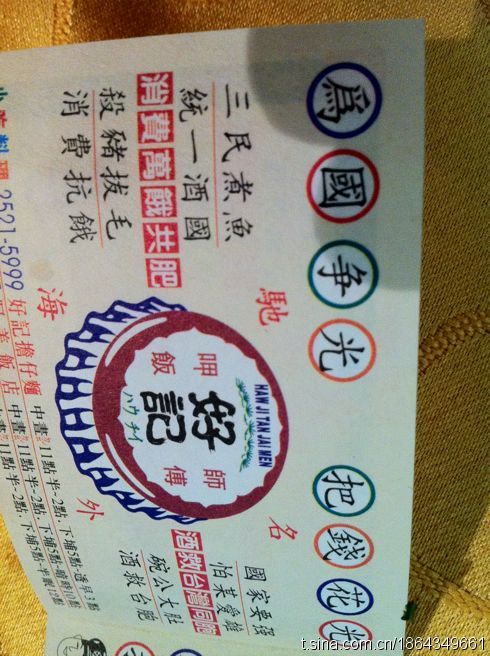 為國爭光 把錢花光
三民煮魚
統一酒國
消費萬餓共肥
殺豬拔毛
消費抗餓
馳名
海外
HAW JI TAN JAI MEN
呷飯 師傅
好記
ハウ チイ
國家要強
怕某愛雄
酒救台灣同胞
碗公大肚
酒救台胞
料理 2521-5999 好記擔仔麵 中晝11點半-2點. 下埔5點
飯店 中晝11點半-2點. 下埔5點
t.sina.com.cn/1864349661